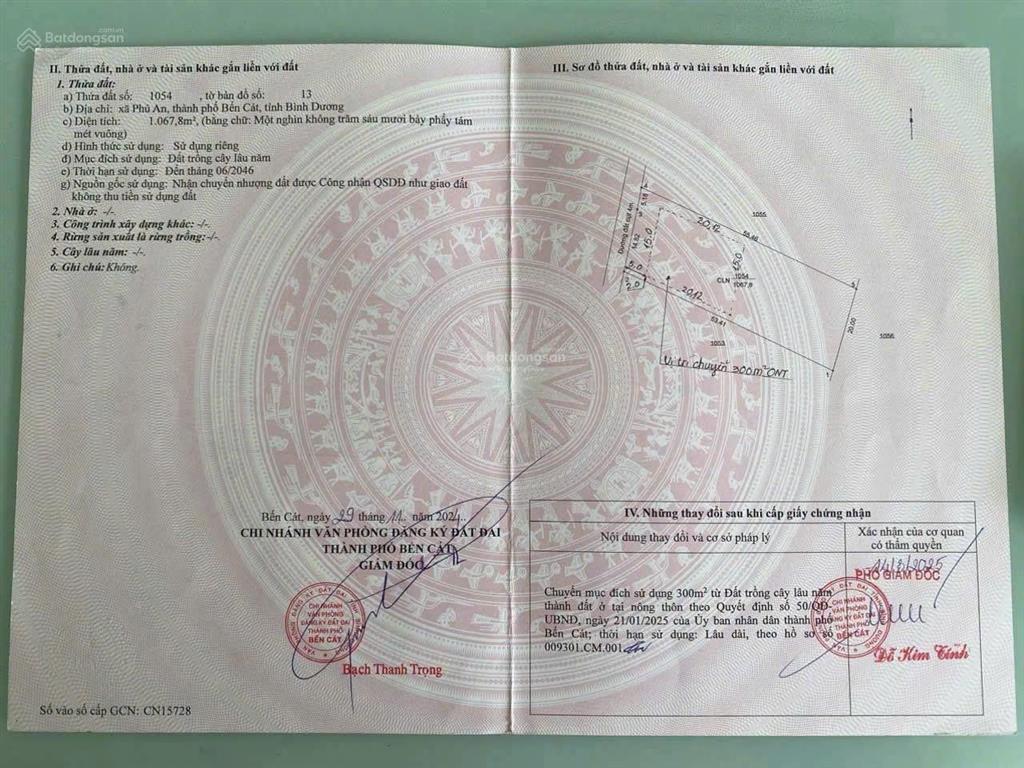 Batdongsan
.com.vn
II. Thửa đất, nhà ở và tài sản khác gắn liền với đất
1. Thửa đất:
a) Thửa đất số: 1054 , tờ bản đồ số: 13
b) Địa chỉ: xã Phú An, thành phố Bến Cát, tỉnh Bình Dương
c) Diện tích: 1.067,8m², (bằng chữ: Một nghìn không trăm sáu mươi bảy phẩy tám
mét vuông)
d) Hình thức sử dụng: Sử dụng riêng
đ) Mục đích sử dụng: Đất trồng cây lâu năm
e) Thời hạn sử dụng: Đến tháng 06/2046
g) Nguồn gốc sử dụng: Nhận chuyển nhượng đất được Công nhận QSDĐ như giao đất
không thu tiền sử dụng đất
2. Nhà ở: -/-
3. Công trình xây dựng khác: -/-
4. Rừng sản xuất là rừng trồng:-/-
5. Cây lâu năm: -/-
6. Ghi chú: Không.
Bến Cát, ngày 29 tháng 11 năm 2024
CHI NHÁNH VĂN PHÒNG ĐĂNG KÝ ĐẤT ĐAI
THÀNH PHỐ BẾN CÁT
GIÁM ĐỐC
CHI NHÁNH
VĂN PHÒNG
ĐĂNG KÝ ĐẤT ĐAI
THÀNH PHỐ
BẾN CÁT
Bạch Thanh Trọng
Số vào sổ cấp GCN: CN15728
III. Sơ đồ thửa đất, nhà ở và tài sản khác gắn liền với đất
5.18
1055
20,12
14.82
15.0
15.0
5.0
2.0
CLN 1054
1067,8
20,12
53.41
20.00
1056
1053
Vị trí chuyển 300m² ONT
Batdongsan
.com.vn
IV. Những thay đổi sau khi cấp giấy chứng nhận
Nội dung thay đổi và cơ sở pháp lý
Xác nhận của cơ quan
có thẩm quyền
PHÓ GIÁM ĐỐC
Chuyển mục đích sử dụng 300m² từ Đất trồng cây lâu năm
thành đất ở tại nông thôn theo Quyết định số 50/QĐ-
UBND, ngày 21/01/2025 của Ủy ban nhân dân thành phố
Bến Cát; thời hạn sử dụng: Lâu dài, theo hồ sơ số
009301.CM.001
CHI NHÁNH
VĂN PHÒNG
ĐĂNG KÝ ĐẤT ĐAI
THÀNH PHỐ
BẾN CÁT
Đỗ Kim Tính